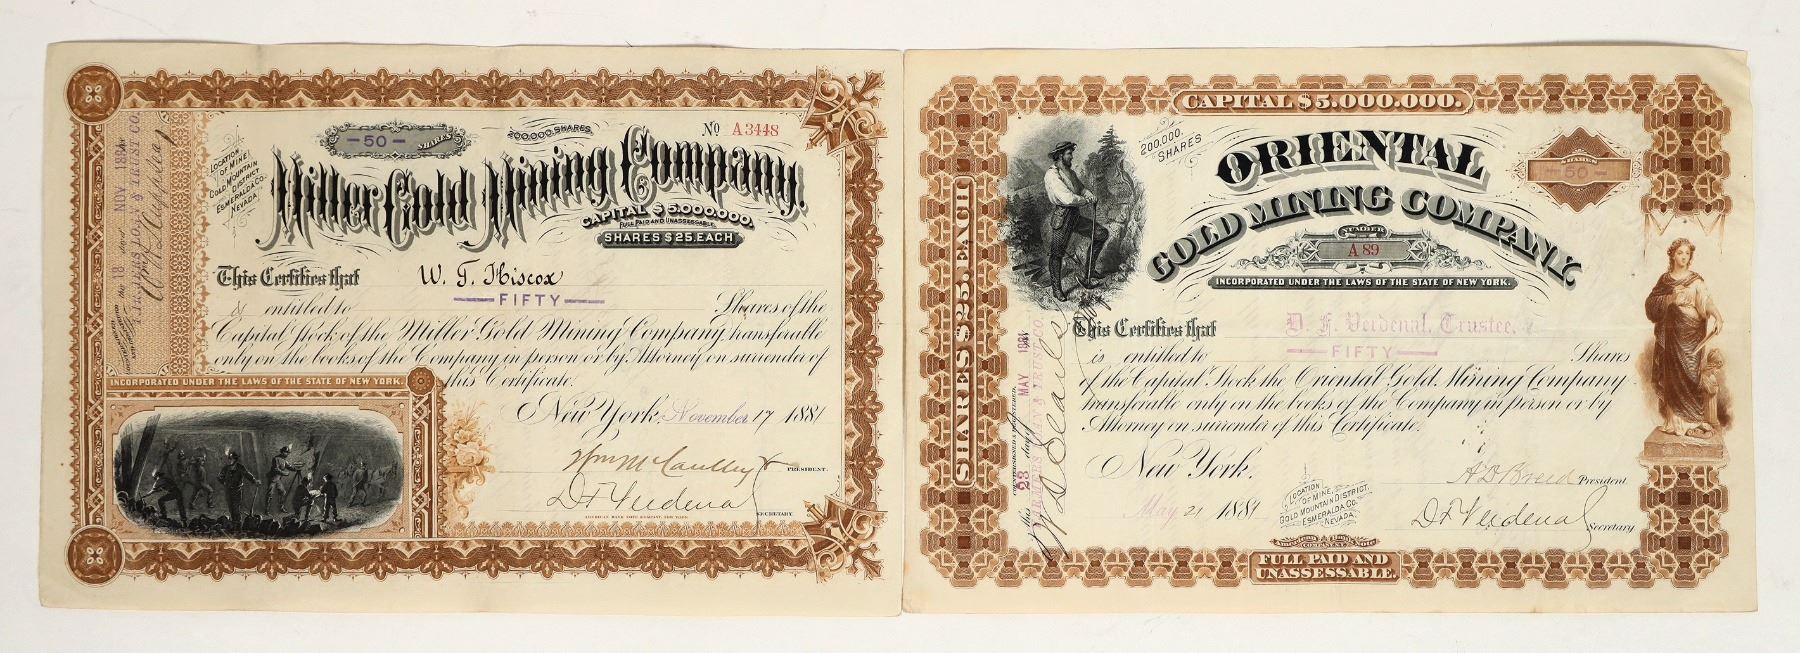 No A3448
200,000 SHARES
— 50 — SHARES
LOCATION
OF MINE
GOLD MOUNTAIN
DISTRICT
ESMERALDA CO.
NEVADA.
Miller Gold Mining Company.
CAPITAL $5,000,000.
FULL PAID AND UNASSESSABLE.
SHARES $25. EACH
This Certifies that W. T. Hiscox
is entitled to FIFTY Shares of the
Capital Stock of the Miller Gold Mining Company transferable
only on the books of the Company in person or by Attorney on surrender of
this Certificate.
INCORPORATED UNDER THE LAWS OF THE STATE OF NEW YORK.
New York, November 17 1881
PRESIDENT.
D F Verdenal
SECRETARY.
AMERICAN BANK NOTE COMPANY, NEW YORK.
this 18 day NOV 1881
TRUST CO.
CAPITAL $5.000.000.
200.000.
SHARES
ORIENTAL
GOLD MINING COMPANY.
SHARES
— 50 —
NUMBER
A 89
INCORPORATED UNDER THE LAWS OF THE STATE OF NEW YORK.
This Certifies that D. F. Verdenal, Trustee,
is entitled to FIFTY Shares
of the Capital Stock the Oriental Gold Mining Company
transferable only on the books of the Company in person or by
Attorney on surrender of this Certificate.
New York.
May 21 1881
LOCATION
OF MINE,
GOLD MOUNTAIN DISTRICT,
ESMERALDA CO.
NEVADA.
A D Breed President
D F Verdenal Secretary
SHARES $25. EACH
COUNTERSIGNED & REGISTERED,
this 23 day MAY 1881
FULL PAID AND
UNASSESSABLE.